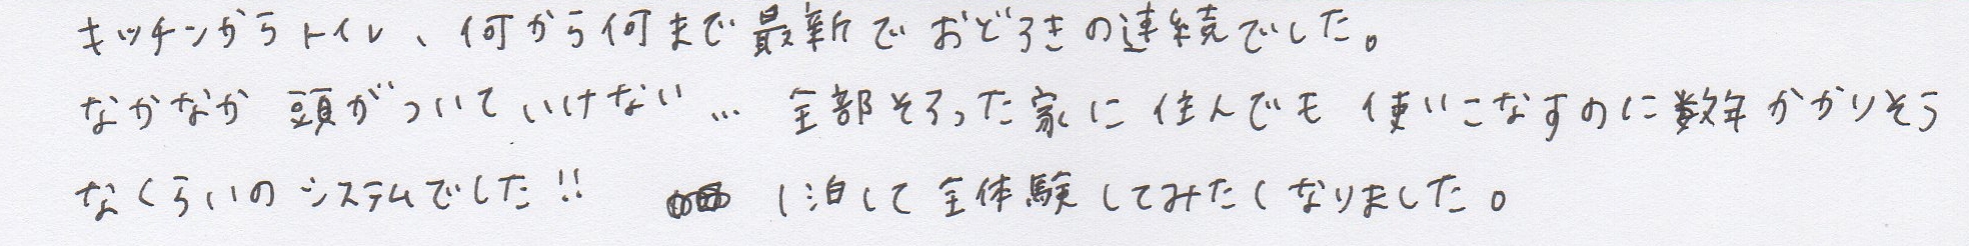 キッチンからトイレ、何から何まで最新でおどろきの連続でした。
なかなか頭がついていけない… 全部そろった家に住んでも使いこなすのに数年かかりそう
なくらいのシステムでした!! 1泊して全体験してみたくなりました。